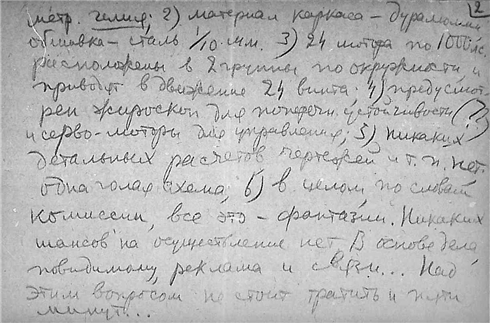 2
метр. гелия; 2) материал каркаса – дуралюмин
обшивка – сталь 1/10 м.м. 3) 24 мотора по 1000 л.с.
расположены в 2 группы по окружности, и
приводят в движение 24 винта; 4) предусмот-
рен жироскоп для поперечн. устойчивости (?)
и серво-моторы для управления; 5) никаких
детальных расчетов чертежей и т. п. нет-
одна голая схема; 6) в целом, по словам
комиссии, все это – фантазии. Никаких
шансов на осуществление нет. В основе дела,
повидимому, реклама и связи... Над
этим вопросом не стоит тратить и пяти
минут...